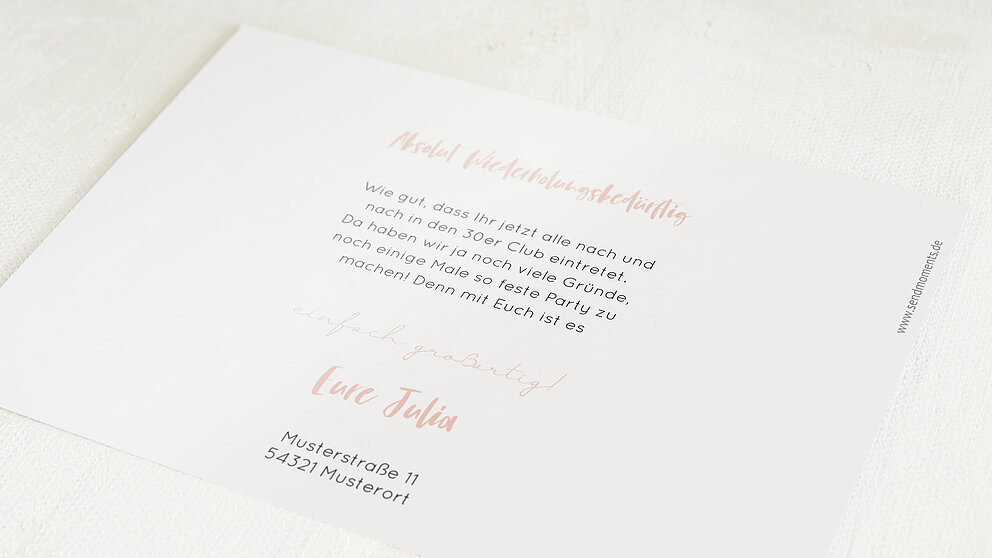 Absolut Wiederholungsbedürftig
Wie gut, dass Ihr jetzt alle nach und
nach in den 30er Club eintretet.
Da haben wir ja noch viele Gründe,
noch einige Male so feste Party zu
machen! Denn mit Euch ist es
einfach großartig!
Eure Julia
Musterstraße 11
54321 Musterort
www.sendmoments.de